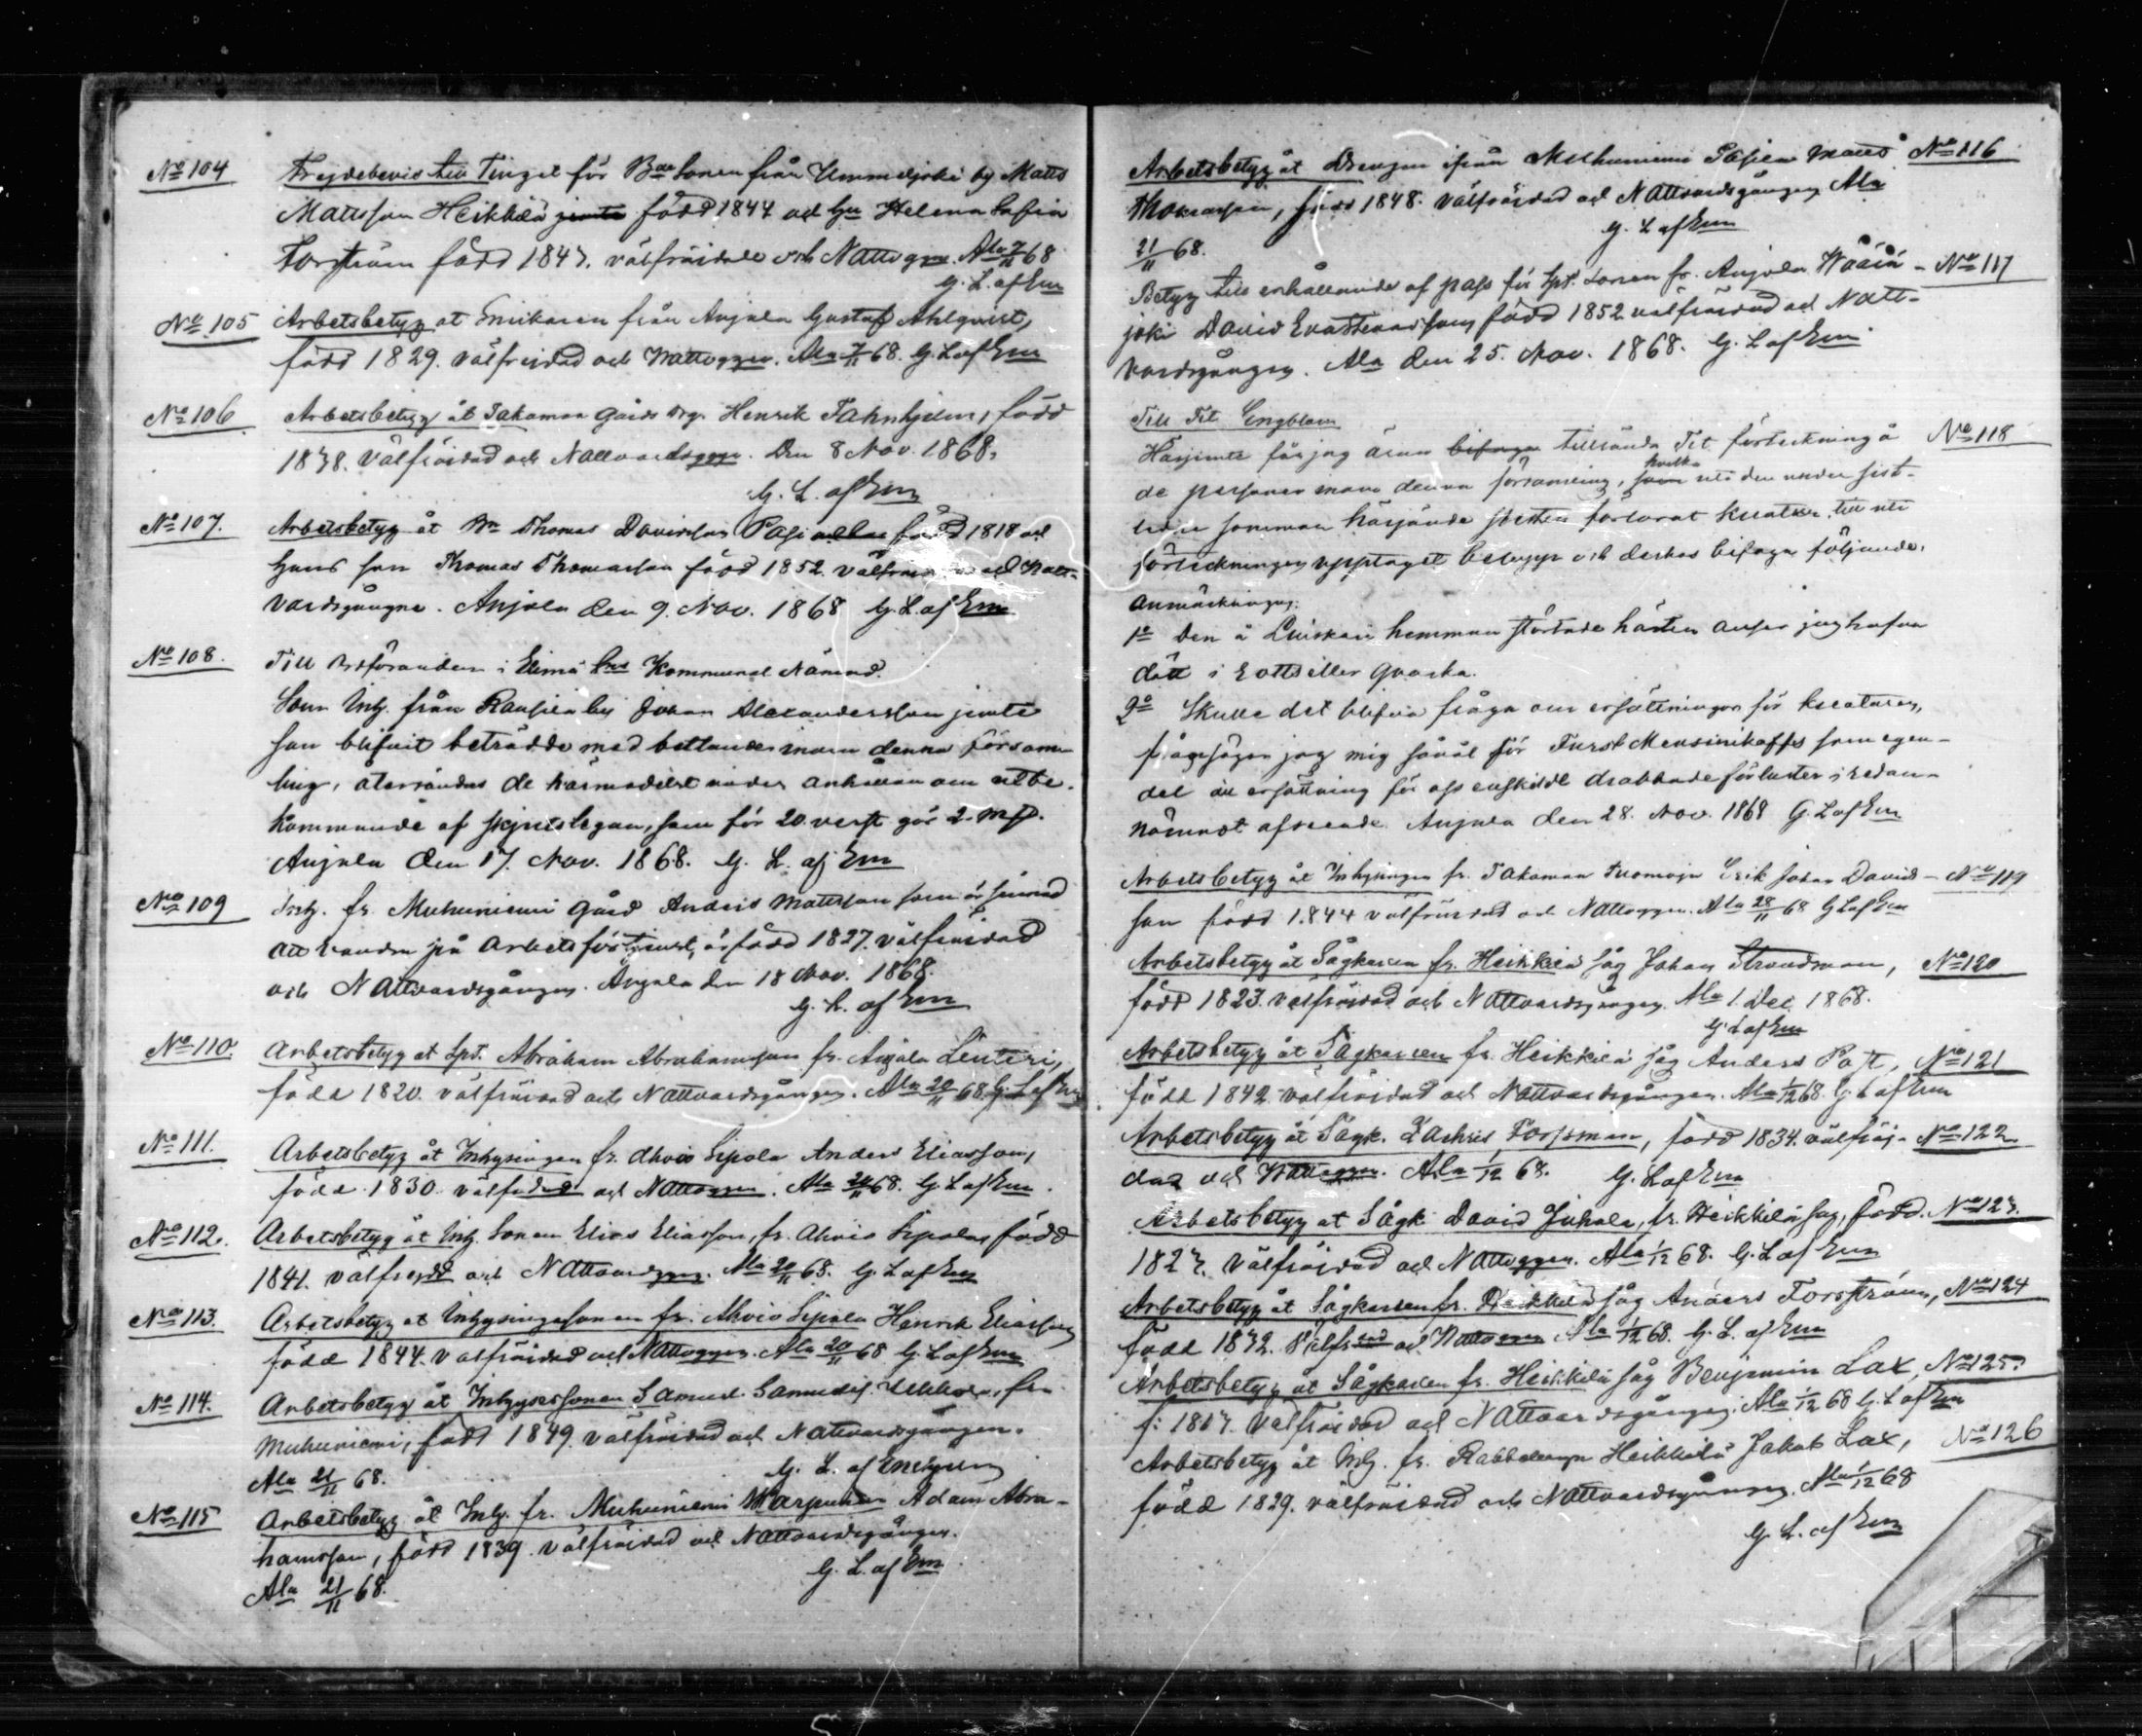 No 104 Frejdebevis till Tinget för Bde Sonen från Ummeljoki by Matts
Mattsson Heikkilä jemte född 1844 och Hu Helena Sofia
Forström född 1843. välfräjdade och Nattvgne. Ala 7/11 68
G. L. af Em
No 105 Arbetsbetyg åt Snikaren från Anjala Gustaf Ahlqvist,
född 1829. välfräjdad och Nattvggen. Ala 7/11 68. G. L af Em
No 106 Arbetsbetyg åt Takamaa Gårds Drg. Henrik Jahnhjelm, född
1838. Välfräjdad och Nattvardsggn. Den 8 Nov. 1868.
G. L. af Em
No 107. Arbetsbetyg åt Thomas Davidsson Pasi född 1818 och
Hans son Thomas Thomasson född 1852. välfräjdade och Natt-
vardsgångne. Anjala den 9. Nov. 1868 G. L. af Em
No 108. Till Ordföranden i Elimä Kommunal Nämnd.
Som Inh. från Raussila by Johan Alexandersson jemte
son blifvit beträdde med bettlande inom denna Försam-
ling, återsändes de härmedelst under anhållan om utbe-
kommande af skjutslegan, som för 20 verst gör 2 mp.
Anjala den 17. Nov. 1868. G. L. af Em
No 109 Inh. fr. Muhuniemi Gård Anders Mattsson som är sinnad
att vandra på arbetsförtjenst, är född 1827. välfräjdad
och Nattvardsgången. Anjala den 18 Nov. 1868.
G. L. af Em
No 110. Arbetsbetyg åt Spt. Abraham Abrahamsson fr. Anjala Lenteri,
född 1820. välfräjdad och Nattvardsgången. Ala 20/11 68. G. L af Em
No 111. Arbetsbetyg åt Inhysingen fr. Ahvio Sipola Anders Eliasson,
född 1830. välfrdad och Nattvggen. Ala 20/11 68. G. L af Em.
No 112. Arbetsbetyg åt Inh. Sonen Elias Eliasson, fr. Ahvio Sipola, född
1841. välfrejdd och Nattvardggng. Ala 20/11 68. G. L af Em
No 113. Arbetsbetyg åt Inhysingesonen fr. Ahvio Sipola Henrik Eliasson
född 1844. välfräjdad och Nattvggen. Ala 20/11 68 G. L af Em
No 114. Arbetsbetyg åt Inhysessonen Samuel Samuels. fr.
Muhuniemi, född 1849. välfräjdad och Nattvardsgången.
Ala 21/11 68. G. L. af Enehjelm
No 115 Arbetsbetyg åt Inh. fr. Muhuniemi Warpunen Adam Abra-
hamsson, född 1839. välfräjdad och Nattvardsgången.
Ala 21/11 68. G. L. af Em
Arbetsbetyg åt Drengen ifrån Muhuniemi Pasila Matts No 116
Thomasson, född 1848. välfräjdad och Nattvardsgången Ala
21/11 68. G. L af Em
Betyg till erhållande af pass för Spt. Sonen fr. Anjala Wäärä- No 117
joki David Evastenasson, född 1852 välfräjdad och Natt-
vardsgången. Ala den 25. Nov. 1868. G. L af Em
Till Tit Engblom
Härjemte får jag äran bifoga tillsända Tit förteckning å No 118
de personer inom denna församling, som hvilka uti den under sist-
lidne sommar härjande förlorat kreatur till uti
förteckningen upptaget belopp och derhos bifoga följande
anmärkningar.
1o Den å Liiskari hemman störtade hästen anser jag hafva
dött i Rotts eller Qvarka.
2o Skulle det blifva fråga om ersättningar för kreaturen,
frånsäger jag mig såväl för Furst Menzinikoffs som egen-
del all ersättning för oss enskildt drabbade förluster i redan-
nämndt afseende. Anjala den 28. Nov. 1868 G. L af Em
Arbetsbetyg åt Inhysingen fr. Takamaa Tuomoja Erik Johan David- No 119
son född 1844 välfräjdad och Nattvggen. Ala 28/11 68 G L af Em
Arbetsbetyg åt Sågkarlen fr. Heikkilä såg Johan Strandman, No 120
född 1823. välfräjdad och Nattvardsgången. Ala 1. Dec. 1868.
G. L af Em
Arbetsbetyg åt Sågkarlen fr. Heikkilä såg Anders Post, No 121
född 1842. välfräjdad och Nattvardsgången. Ala 1/12 68. G. L af Em
Arbetsbetyg åt Sågk. Zachris Forssman, född 1834. välfräj- No 122
dad och Nattvggen. Ala 1/12 68. G. L af Em
Arbetsbetyg åt Sågk. David Juhala, fr. Heikkilä såg, född. No 123.
1823. Välfräjdad och Nattvggen. Ala 1/12 68. G. L af Em
Arbetsbetyg åt Sågkarlen fr. Heikkilä såg Anders Forsström, No 124
född 1832. Välfrdad och Nattvggen Ala 1/12 68. G. L. af Em
Arbetsbetyg åt Sågkarlen fr. Heikkilä såg Benjamin Lax, No 125.
f. 1813. Välfräjdad och Nattvardsgången. Ala 1/12 68 G. L af Em
Arbetsbetyg åt Inh. fr. Rabbelugn Heikkilä Jakob Lax, No 126
född 1829. välfräjdad och Nattvardsgången. Ala 1/12 68
G. L. af Em